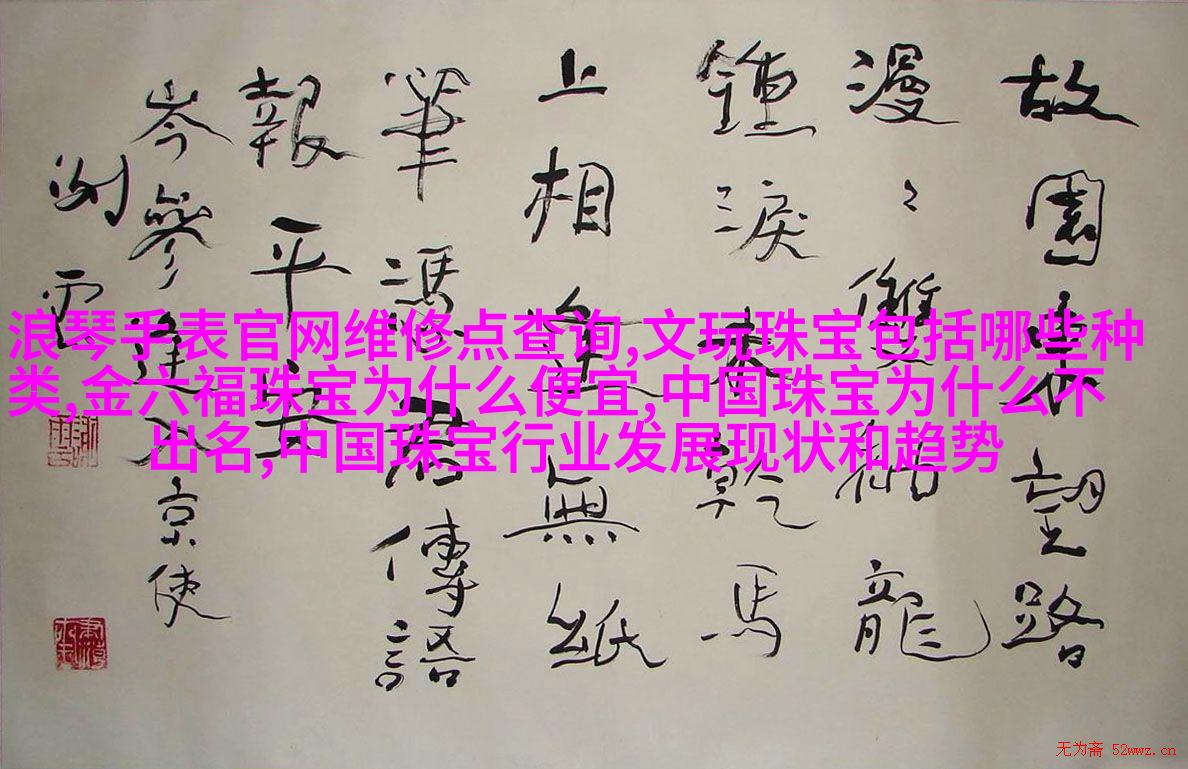 浪琴手表官网维修点查询,文玩珠宝包括哪些种
类,金六福珠宝为什么便宜,中国珠宝为什么不
出名,中国珠宝行业发展现状和趋势
故園東望路
漫〻雙袖龍
鍾淚乾馬
上相逢無紙
筆馮君傳語
報平安
岑參逢入京使
雲
无为斋 52wwz.cn